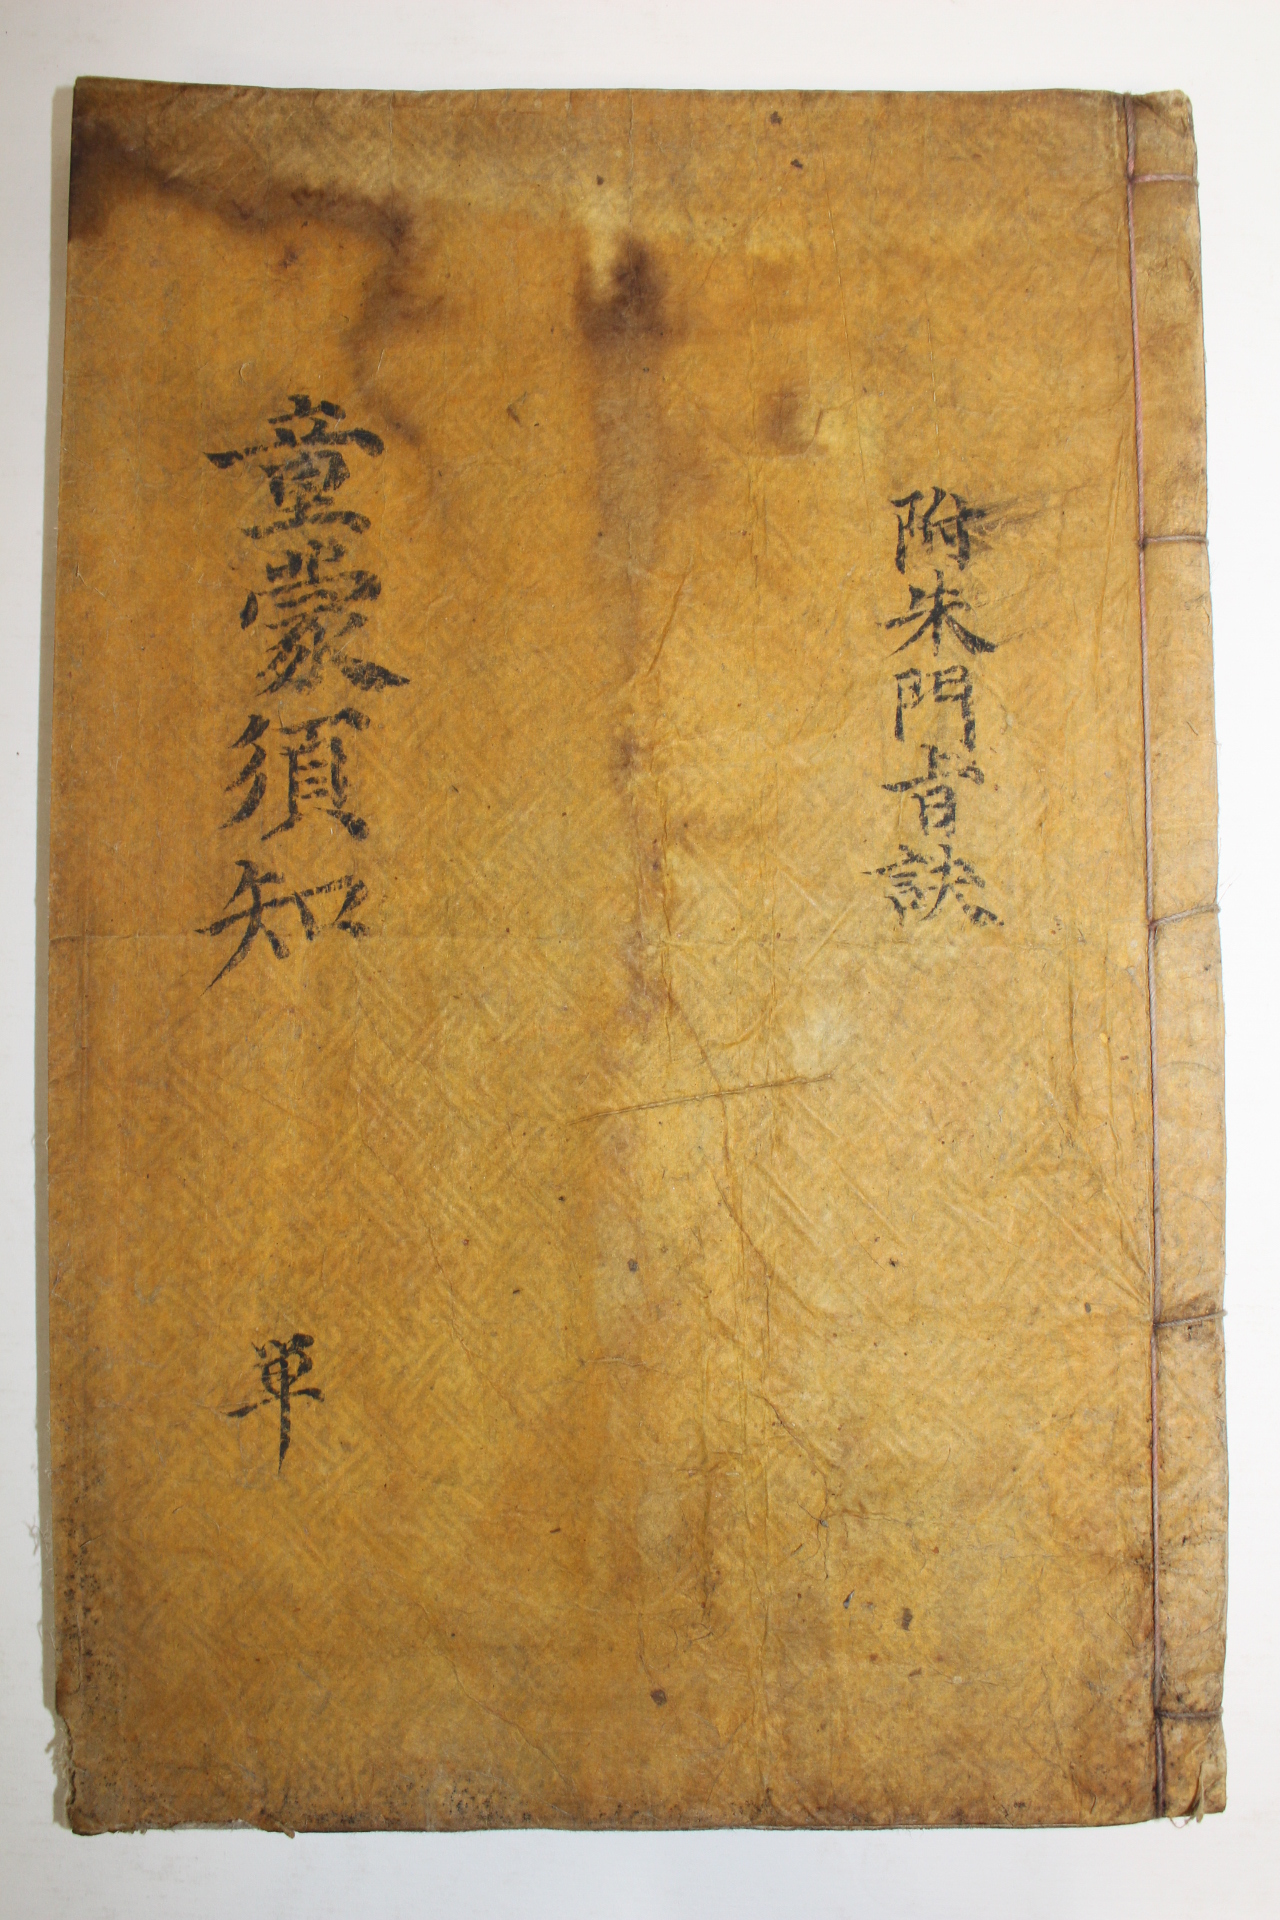 附朱門旨訣
童蒙須知
单